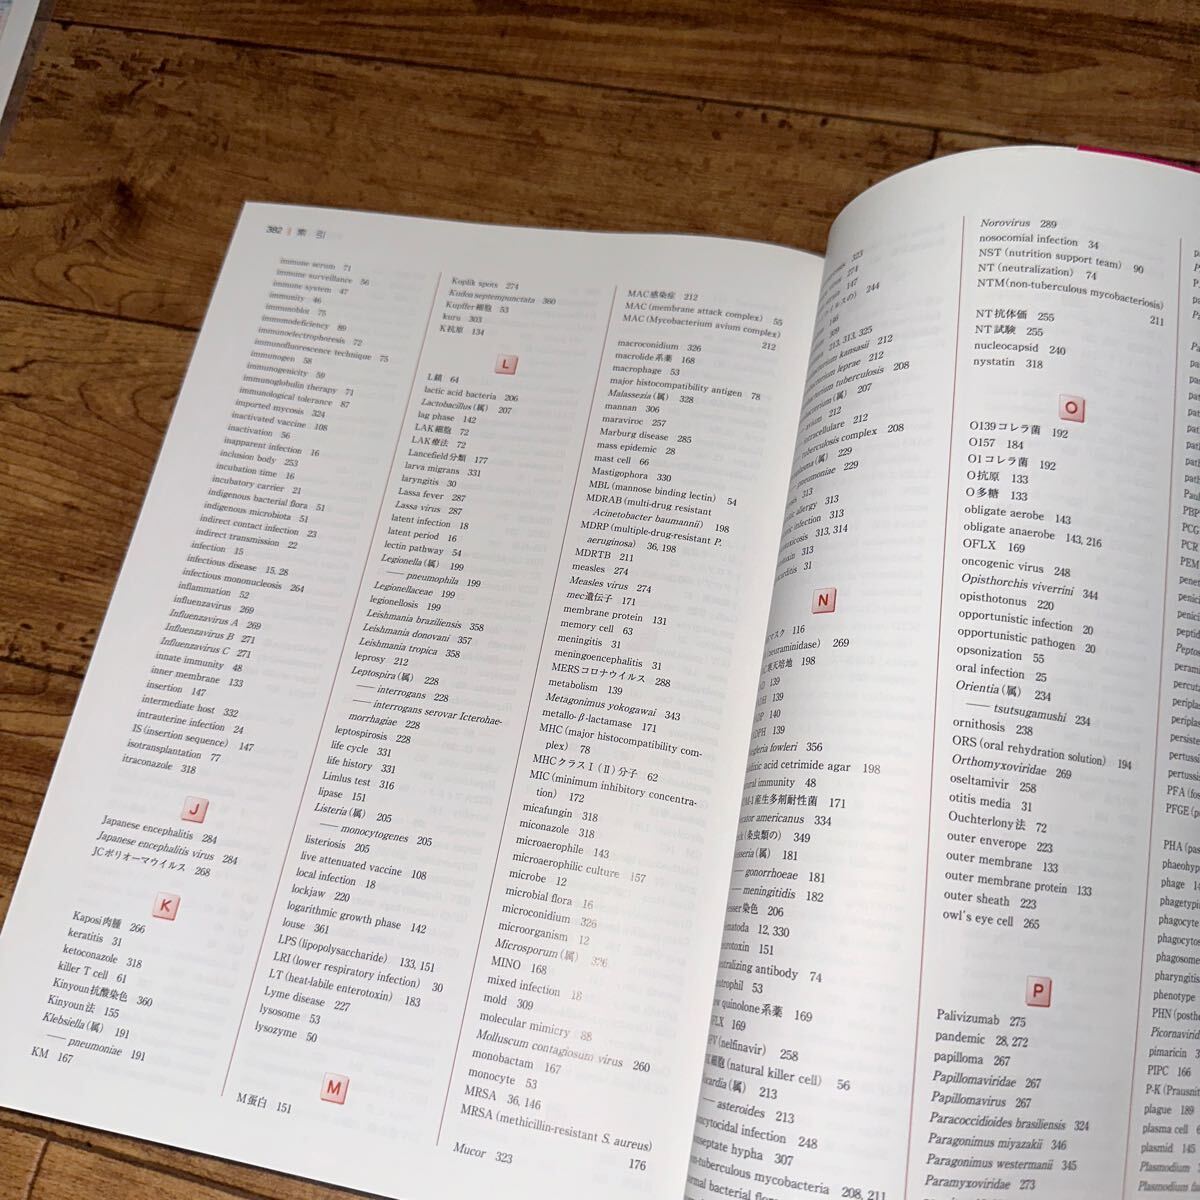 382 索 引
immune serum 71
immune surveillance 56
immune system 47
immunity 46
immunoblot 75
immunodeficiency 89
immunoelectrophoresis 72
immunofluorescence technique 75
immunogen 58
immunogenicity 59
immunoglobulin therapy 71
immunological tolerance 87
imported mycosis 324
inactivated vaccine 108
inactivation 56
inapparent infection 16
inclusion body 253
incubation time 16
incubatory carrier 21
indigenous bacterial flora 51
indigenous microbiota 51
indirect contact infection 23
indirect transmission 22
infection 15
infectious disease 15, 28
infectious mononucleosis 264
inflammation 52
influenzavirus 269
Influenzavirus A 269
Influenzavirus B 271
Influenzavirus C 271
innate immunity 48
inner membrane 133
insertion 147
intermediate host 332
intrauterine infection 24
IS (insertion sequence) 147
isotransplantation 77
itraconazole 318
J
Japanese encephalitis 284
Japanese encephalitis virus 284
JCポリオーマウイルス 268
K
Kaposi肉腫 266
keratitis 31
ketoconazole 318
killer T cell 61
Kinyoun抗酸染色 360
Kinyoun法 155
Klebsiella(属) 191
—— pneumoniae 191
KM 167
Koplik spots 274
Kudoa septempunctata 360
Kupffer細胞 53
kuru 303
K抗原 134
L
L鎖 64
lactic acid bacteria 206
Lactobacillus(属) 207
lag phase 142
LAK細胞 72
LAK療法 72
Lancefield分類 177
larva migrans 331
laryngitis 30
Lassa fever 287
Lassa virus 287
latent infection 18
latent period 16
lectin pathway 54
Legionella(属) 199
—— pneumophila 199
Legionellaceae 199
legionellosis 199
Leishmania braziliensis 358
Leishmania donovani 357
Leishmania tropica 358
leprosy 212
Leptospira(属) 228
—— interrogans 228
—— interrogans serovar Icterohae-
morrhagiae 228
leptospirosis 228
life cycle 331
life history 331
Limlus test 316
lipase 151
Listeria(属) 205
—— monocytogenes 205
listeriosis 205
live attenuated vaccine 108
local infection 18
lockjaw 220
logarithmic growth phase 142
louse 361
LPS (lipopolysaccharide) 133, 151
LRI (lower respiratory infection) 30
LT (heat-labile enterotoxin) 183
Lyme disease 227
lysosome 53
lysozyme 50
M
M蛋白 151
MAC感染症 212
MAC (membrane attack complex) 55
MAC (Mycobacterium avium complex)
212
macroconidium 326
macrolide系薬 168
macrophage 53
major histocompatibility antigen 78
Malassezia(属) 328
mannan 306
maraviroc 257
Marburg disease 285
mass epidemic 28
mast cell 66
Mastigophora 330
MBL (mannose binding lectin) 54
MDRAB (multi-drug resistant
Acinetobacter baumannii) 198
MDRP (multiple-drug-resistant P.
aeruginosa) 36, 198
MDRTB 211
measles 274
Measles virus 274
mec遺伝子 171
membrane protein 131
memory cell 63
meningitis 31
meningoencephalitis 31
MERSコロナウイルス 288
metabolism 139
Metagonimus yokogawai 343
metallo-β-lactamase 171
MHC (major histocompatibility com-
plex) 78
MHCクラスⅠ(Ⅱ)分子 62
MIC (minimum inhibitory concentra-
tion) 172
micafungin 318
miconazole 318
microaerophile 143
microaerophilic culture 157
microbe 12
microbial flora 16
microconidium 326
microorganism 12
Microsporum(属) 326
MINO 168
mixed infection 18
mold 309
molecular mimicry 88
Molluscum contagiosum virus 260
monobactam 167
monocyte 53
MRSA 36, 146
MRSA (methicillin-resistant S. aureus)
176
Mucor 323
323
274
147
244
146
213, 313, 325
kansasii 212
leprae 212
tuberculosis 208
(属) 207
avium 212
intracellulare 212
tuberculosis complex 208
(属) 229
pneumoniae 229
313
allergy 313
infection 313
313, 314
313
31
N
マスク 116
269
寒天培地 198
139
139
140
139
fowleri 356
acid cetrimide agar 198
immunity 48
産生多剤耐性菌 171
americanus 334
(条虫類の) 349
(属) 181
—— gonorrhoeae 181
—— meningitidis 182
染色 206
12, 330
151
antibody 74
53
quinolone系薬 169
169
(nelfinavir) 258
細胞 (natural killer cell) 56
(属) 213
—— asteroides 213
infection 248
hypha 307
mycobacteria 208, 211
bacterial flora
Norovirus 289
nosocomial infection 34
NST (nutrition support team) 90
NT (neutralization) 74
NTM(non-tuberculous mycobacteriosis)
211
NT抗体価 255
NT試験 255
nucleocapsid 240
nystatin 318
O
O139コレラ菌 192
O157 184
O1コレラ菌 192
O抗原 133
O多糖 133
obligate aerobe 143
obligate anaerobe 143, 216
OFLX 169
oncogenic virus 248
Opisthorchis viverrini 344
opisthotonus 220
opportunistic infection 20
opportunistic pathogen 20
opsonization 55
oral infection 25
Orientia(属) 234
—— tsutsugamushi 234
ornithosis 238
ORS (oral rehydration solution) 194
Orthomyxoviridae 269
oseltamivir 258
otitis media 31
Ouchterlony法 72
outer enverope 223
outer membrane 133
outer membrane protein 133
outer sheath 223
owl's eye cell 265
P
Palivizumab 275
pandemic 28, 272
papilloma 267
Papillomaviridae 267
Papillomavirus 267
Paracoccidioides brasiliensis 324
Paragonimus miyazakii 346
Paragonimus westermanii 345
Paramyxoviridae 273
PBP
PCG
PCR
PEM
PFA (fos
PFGE (p
PHA (pas
phage 14
phenotype
PHN (posthe
Picornavirid
pimaricin
PIPC 166
P-K (Prausnit
plague 189
plasma cell 6
plasmid 145
Plasmodium